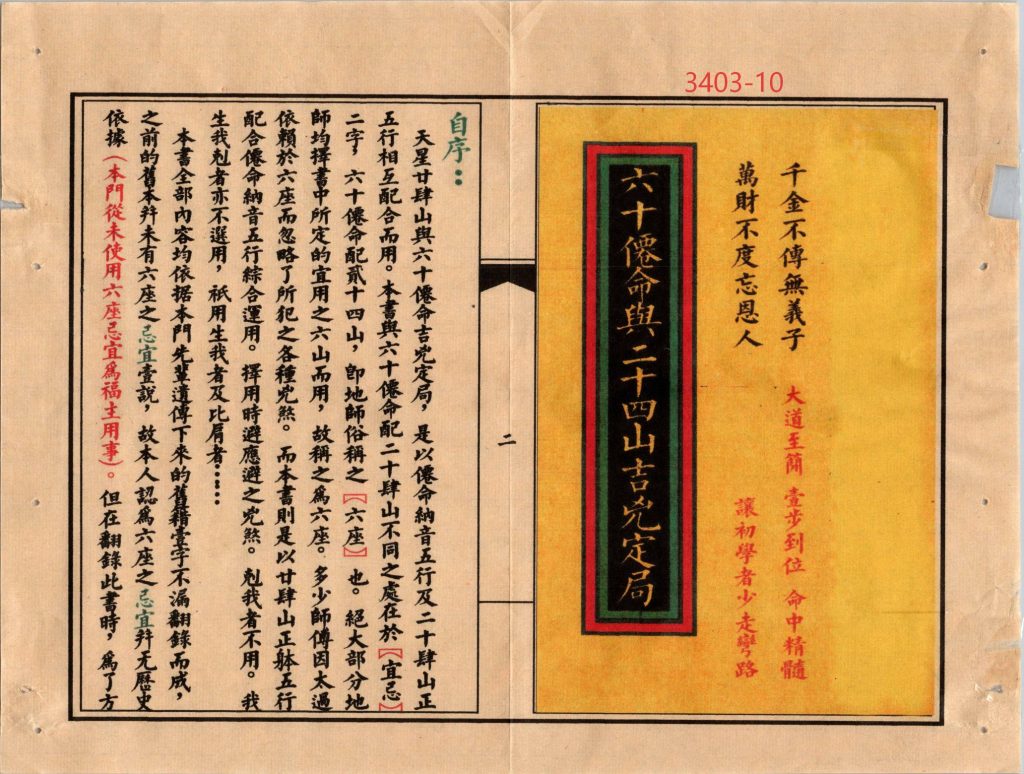 3403-10
千金不傳無義子
萬財不度忘恩人
大道至簡 壹步到位 命中精髓
讓初學者少走彎路
六十僊命與二十四山吉兇定局
二
自序：
天星廿肆山與六十僊命吉兇定局，是以僊命納音五行及二十肆山正
五行相互配合而用。本書與六十僊命配二十肆山不同之處在於【宜忌】
二字，六十僊命配貳十四山，卽地師俗稱之【六座】也。絕大部分地
師均擇書中所定的宜用之六山而用，故稱之爲六座。多少師傅因太過
依賴於六座而忽略了所犯之各種兇煞。而本書則是以廿肆山正躰五行
配合僊命納音五行綜合運用。擇用時避應避之兇煞。剋我者不用。我
生我剋者亦不選用，祇用生我者及比肩者……
本書全部內容均依据本門先輩遺傳下來的舊籍壹字不漏翻錄而成，
之前的舊本幷未有六座之忌宜壹說，故本人認爲六座之忌宜幷无歷史
依據（本門從未使用六座忌宜爲福主用事）。但在翻錄此書時，爲了方